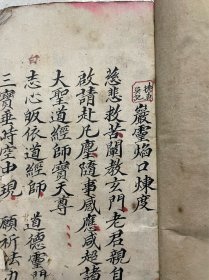 嚴靈焰口煉度
慈悲救苦闡教玄門老君親自
啟請赴凡塵隨事感應咸超諸
大聖道經師寶天尊
志心皈依道經師　道德玄門
三寶垂時空中現　願祈法力